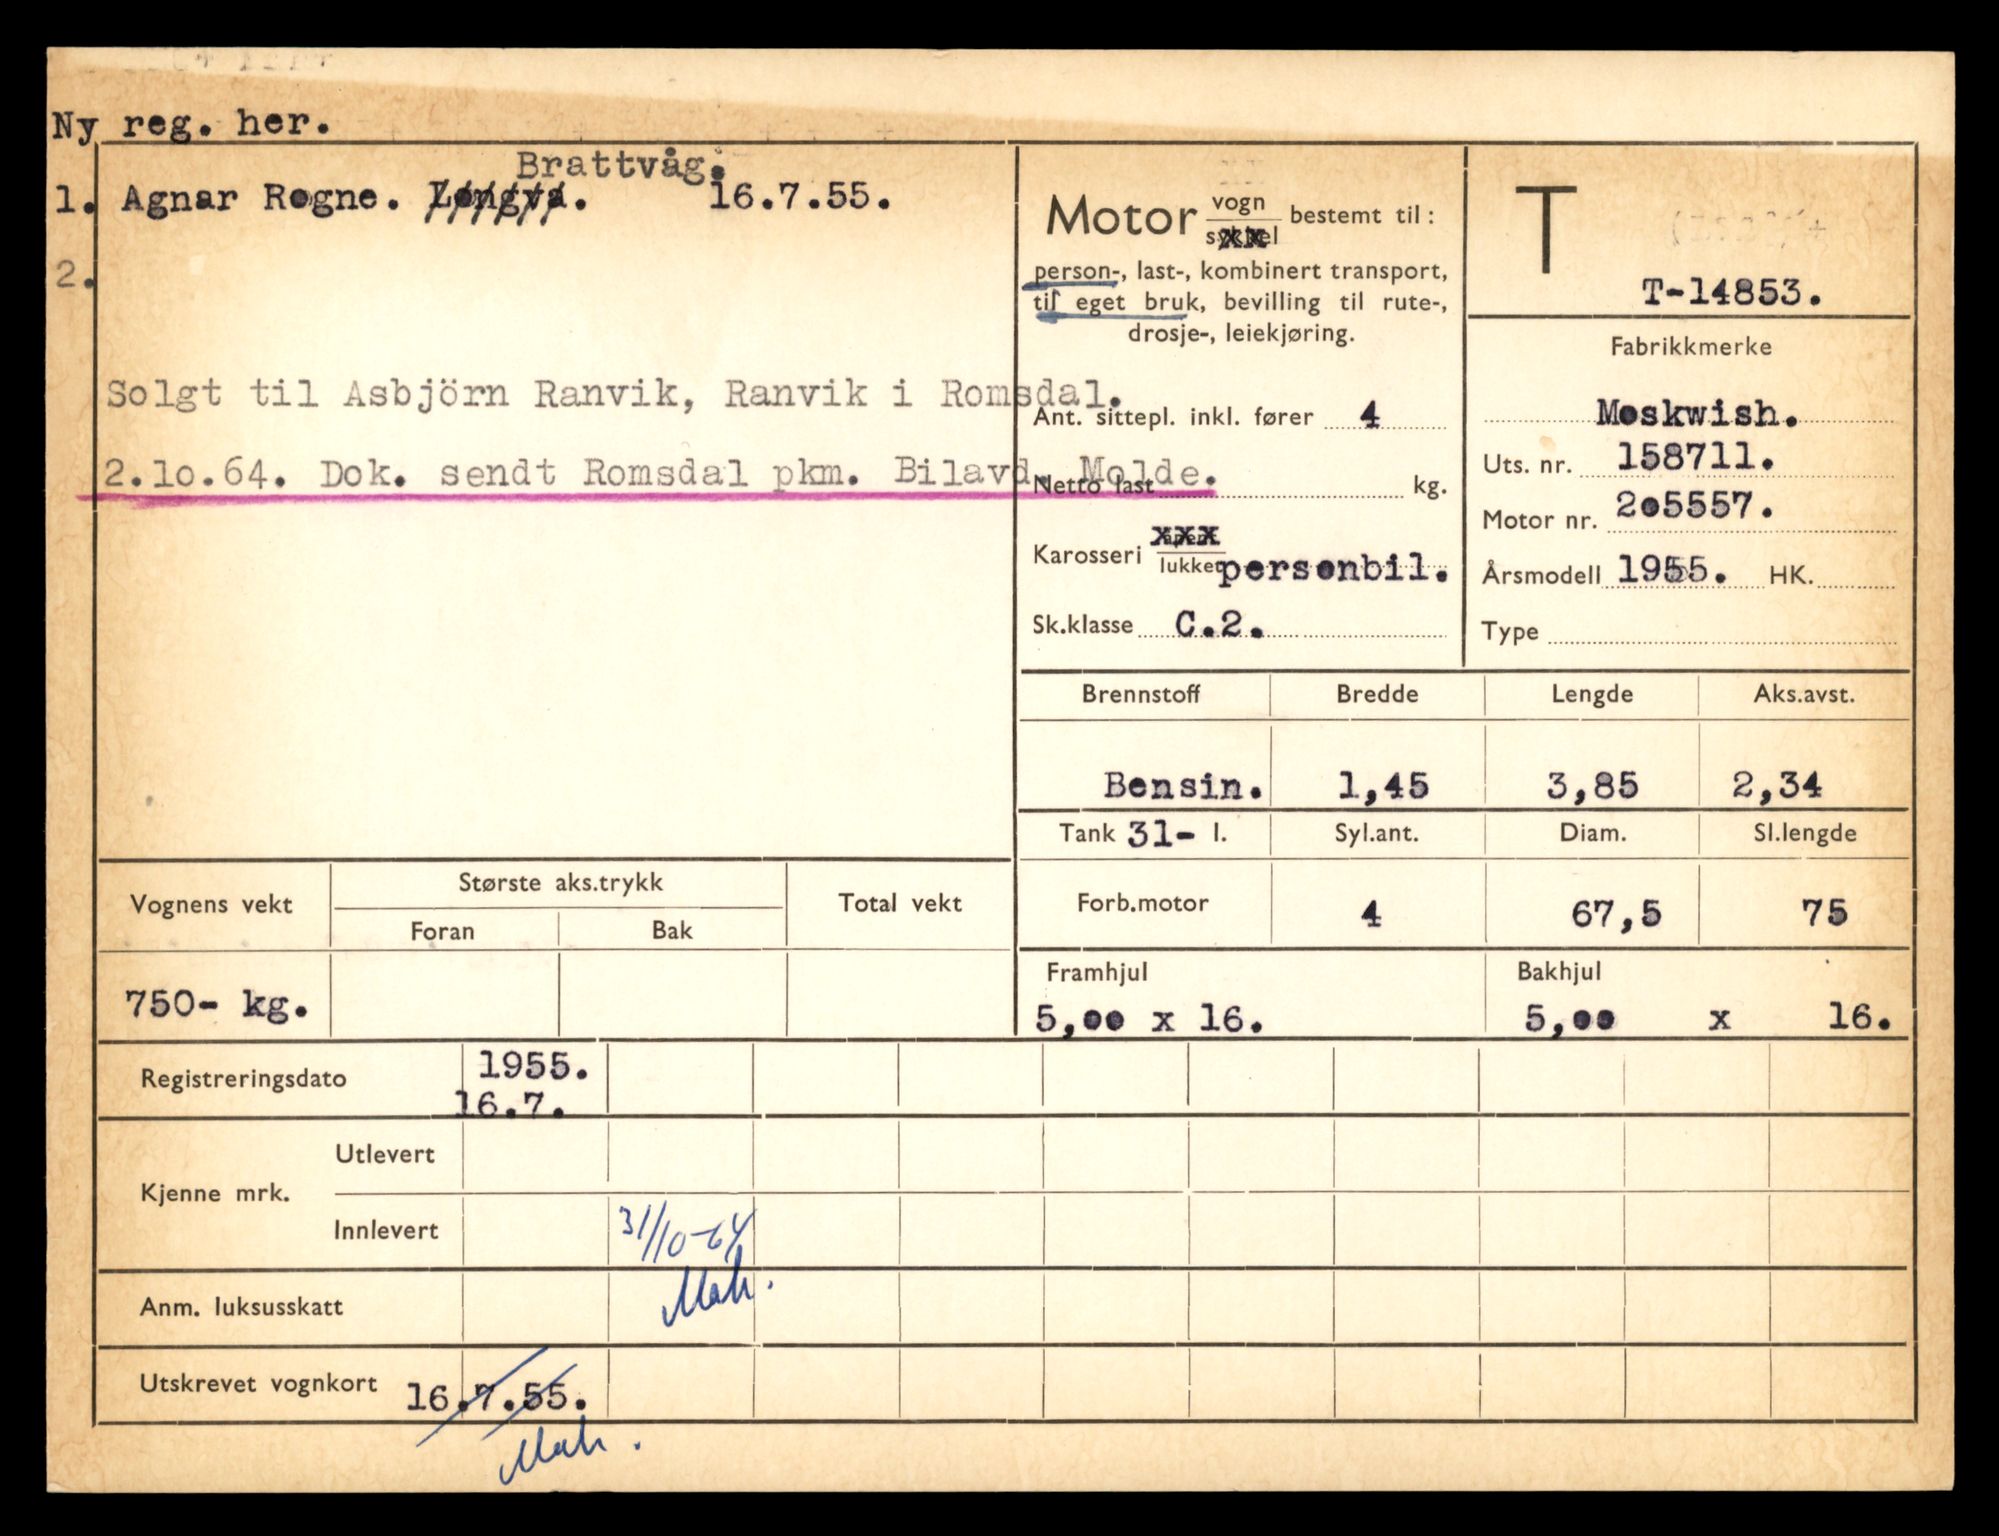 Ny reg. her.
Brattvåg.
1. Agnar Rogne. Longva. 16.7.55.
2.
Solgt til Asbjörn Ranvik, Ranvik i Romsdal.
2.10.64. Dok. sendt Romsdal pkm. Bilavd. Molde.
Motor vogn sykkel bestemt til:
person-, last-, kombinert transport,
til eget bruk, bevilling til rute-,
drosje-, leiekjøring.
Ant. sittepl. inkl. fører 4
Netto last kg.
Karosseri åpent lukket personbil.
Sk.klasse C.2.
T
T-14853.
Fabrikkmerke
Moskwish.
Uts. nr. 158711.
Motor nr. 205557.
Årsmodell 1955. HK.
Type
Brennstoff Bredde Lengde Aks.avst.
Bensin. 1,45 3,85 2,34
Tank 31- l. Syl.ant. Diam. Sl.lengde
Forb.motor 4 67,5 75
Framhjul Bakhjul
5,00 x 16. 5,00 x 16.
Vognens vekt Største aks.trykk Total vekt
Foran Bak
750- kg.
Registreringsdato 1955.
16.7.
Kjenne mrk. Utlevert
Innlevert 31/10-64
Anm. luksusskatt
Utskrevet vognkort 16.7.55.